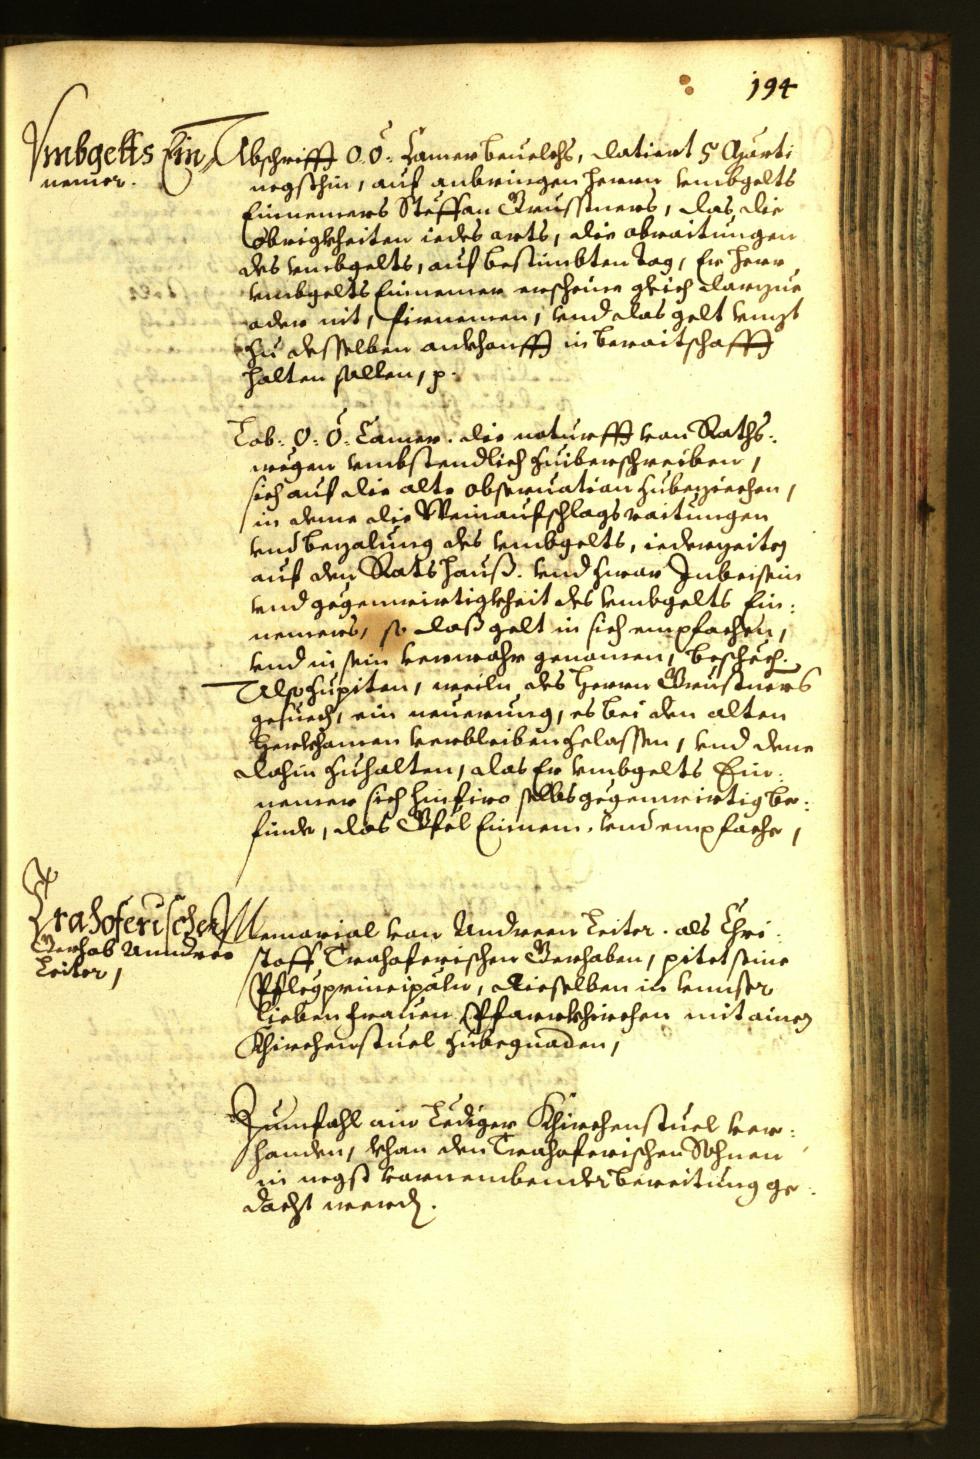 194
Vmbgelts Ein„
nemer.
Abschrifft O: Ö: Camer beuelchs, datiert 5 Marti
negsthin, auf anbringen herrn vmbgelts
Einnemers Steffan Grusstners, das die
Obrigkheiten iedes orts, die abraitungen
des vmbgelts, auf bestimbten tag, Er herr
vmbgelts Einnemer erscheine gleich darzue
oder nit, firnemen, vnd das gelt vnzt
zu desselben ankhonfft in beraitschafft
halten sollen, p.
Lob: O: Ö: Camer. die noturfft von Raths:
wegen vmbstendlich zuiberschreiben,
sich auf die alte obseruation zubeziechen,
in deme die Weinaufschlags raitungen
vnd bezalung des vmbgelts, iederzeiten
auf den Rats hauß. vnd zwar In beisein
vnd gegenwirtigkheit des vmbgelts Ein:
nemers, so daß gelt in sich empfachen,
vnd in sein verwahr genomen, beschech.
Also zupiten, weiln des herrn Grusstners
gesuech, ein neuerung, es bei den alten
herkhomen verbleiben zelassen, vnd dene
dahin zuhalten, das Er vmbgelts Ein:
nemer sich hinfiro selbs gegenwirtig be:
finde, das Gföl Einnem. vnd empfache,
Trahoferischer
Gerhab Anndree
Leiter,
Memorial von Andreen Leiter. als Chri:
stoff Trahoferischen Gerhaben, pitet seine
Pflegprincipäln, dieselben in vnnser
lieben frauen Pfarrkhirchen mit ainen
Khirchenstuel zubegnaden,
Zumfahl ain Lediger Khirchenstuel ver:
handen, khan den Trahoferischen Söhnen
in negst vornembender bereitung ge:
dacht werden.